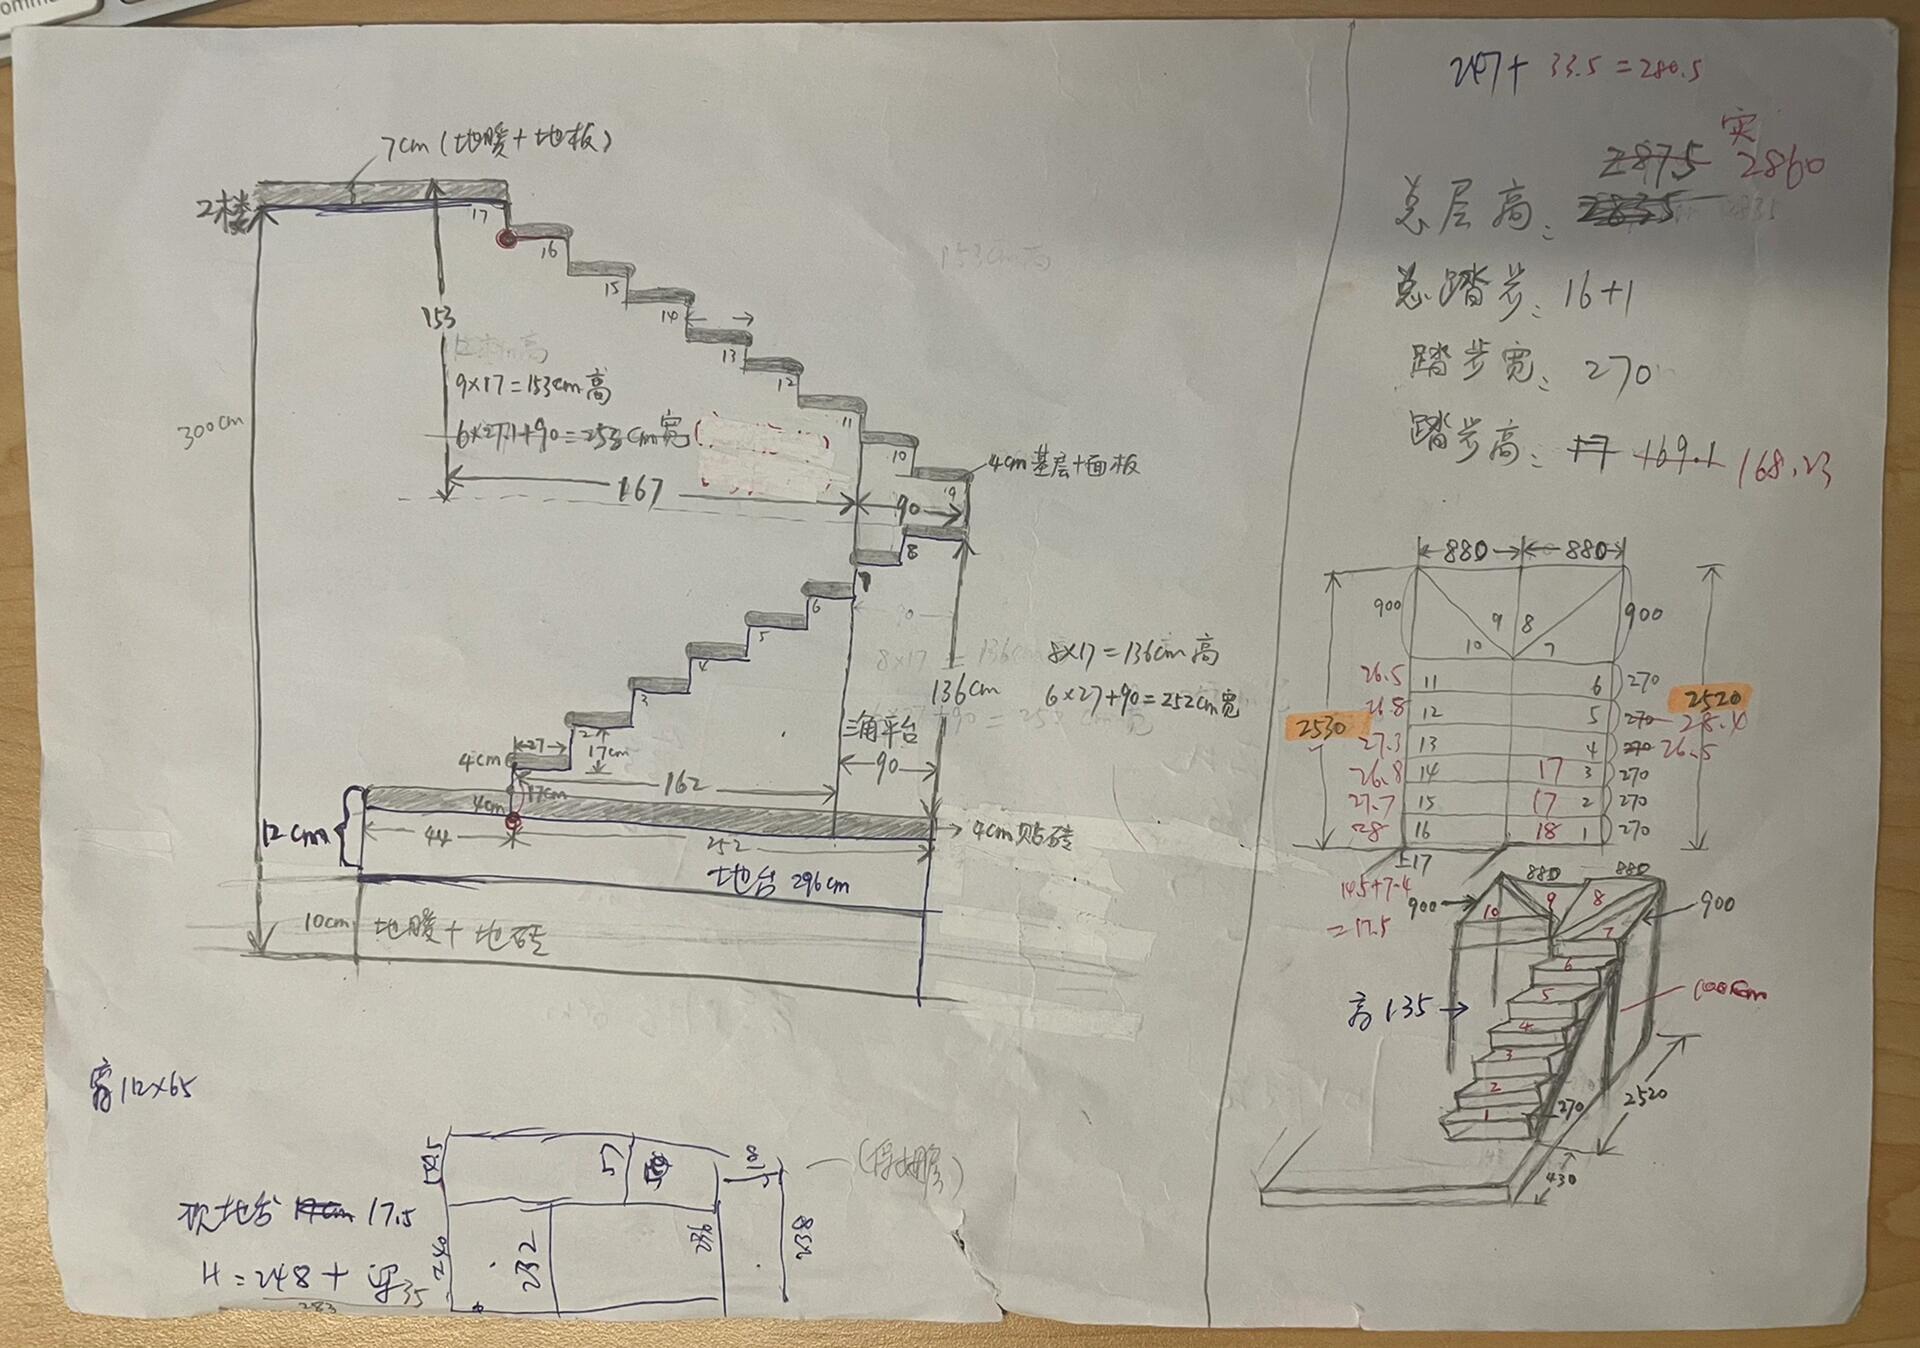 7cm(地暖+地板)
2楼
17
16
15
14
13
12
11
10
9
153
9×17=153cm高
6×27.1+90=253cm宽
300cm
167
90
4cm基层+面板
8
7
6
5
4
3
2
8×17=136cm高
136cm
6×27+90=252cm宽
三角平台
90
27
17cm
4cm
162
17cm
4cm
12cm
44
252
4cm贴砖
地台 296cm
10cm
地暖+地砖
153cm高
247+33.5=280.5
实
2875 2860
总层高: 2835
总踏步: 16+1
踏步宽: 270
踏步高: 17 169.1 168.23
880 880
900 9 8 900
10 7
26.5 11 6 270
26.8 12 5 270 28.4
27.3 13 4 270 26.5
26.8 14 17 3 270
27.7 15 17 2 270
28 16 18 1 270
2530
2520
17
14.5+7-4
=17.5
880 880
900 10 9 8 900
7
6
5
4
3
2
1
高135
270
2520
430
112×65
57
18
240
232
236
238
17.5
H=248+梁35
283